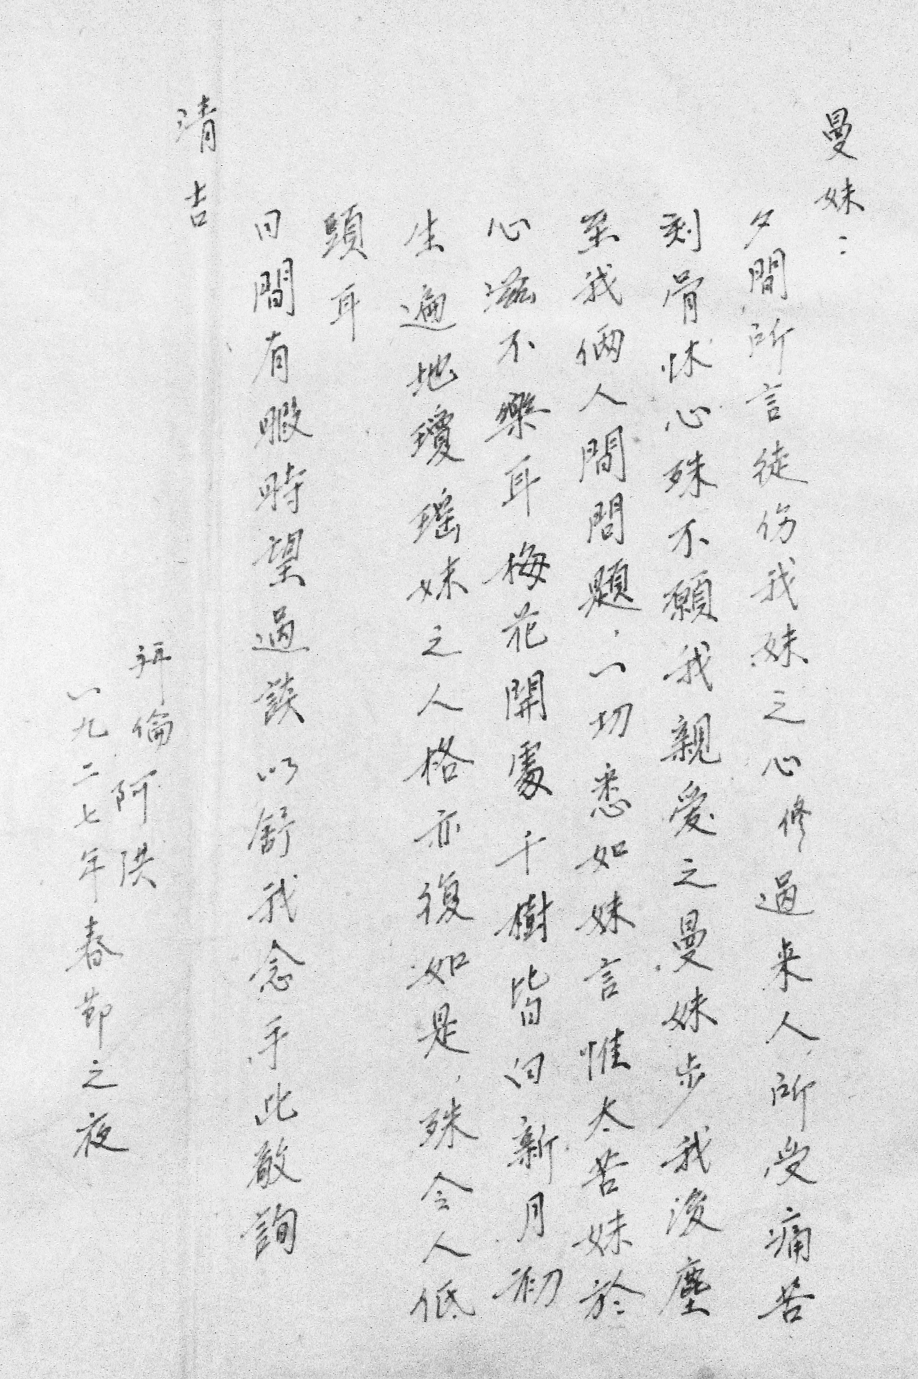 曼妹：
夕間所言徒伤我妹之心修過来人所受痛苦
刻骨怵心殊不願我親愛之曼妹步我後塵
至我倆人間問題，一切悉如妹言惟太苦妹於
心滋不樂耳梅花開處千樹皆白新月初
生遍地瓊瑶妹之人格亦復如是，殊令人低
頭耳
日間有暇時望過談以舒我念手此敬詢
清吉
拜倫阿洪
一九二七年春節之夜